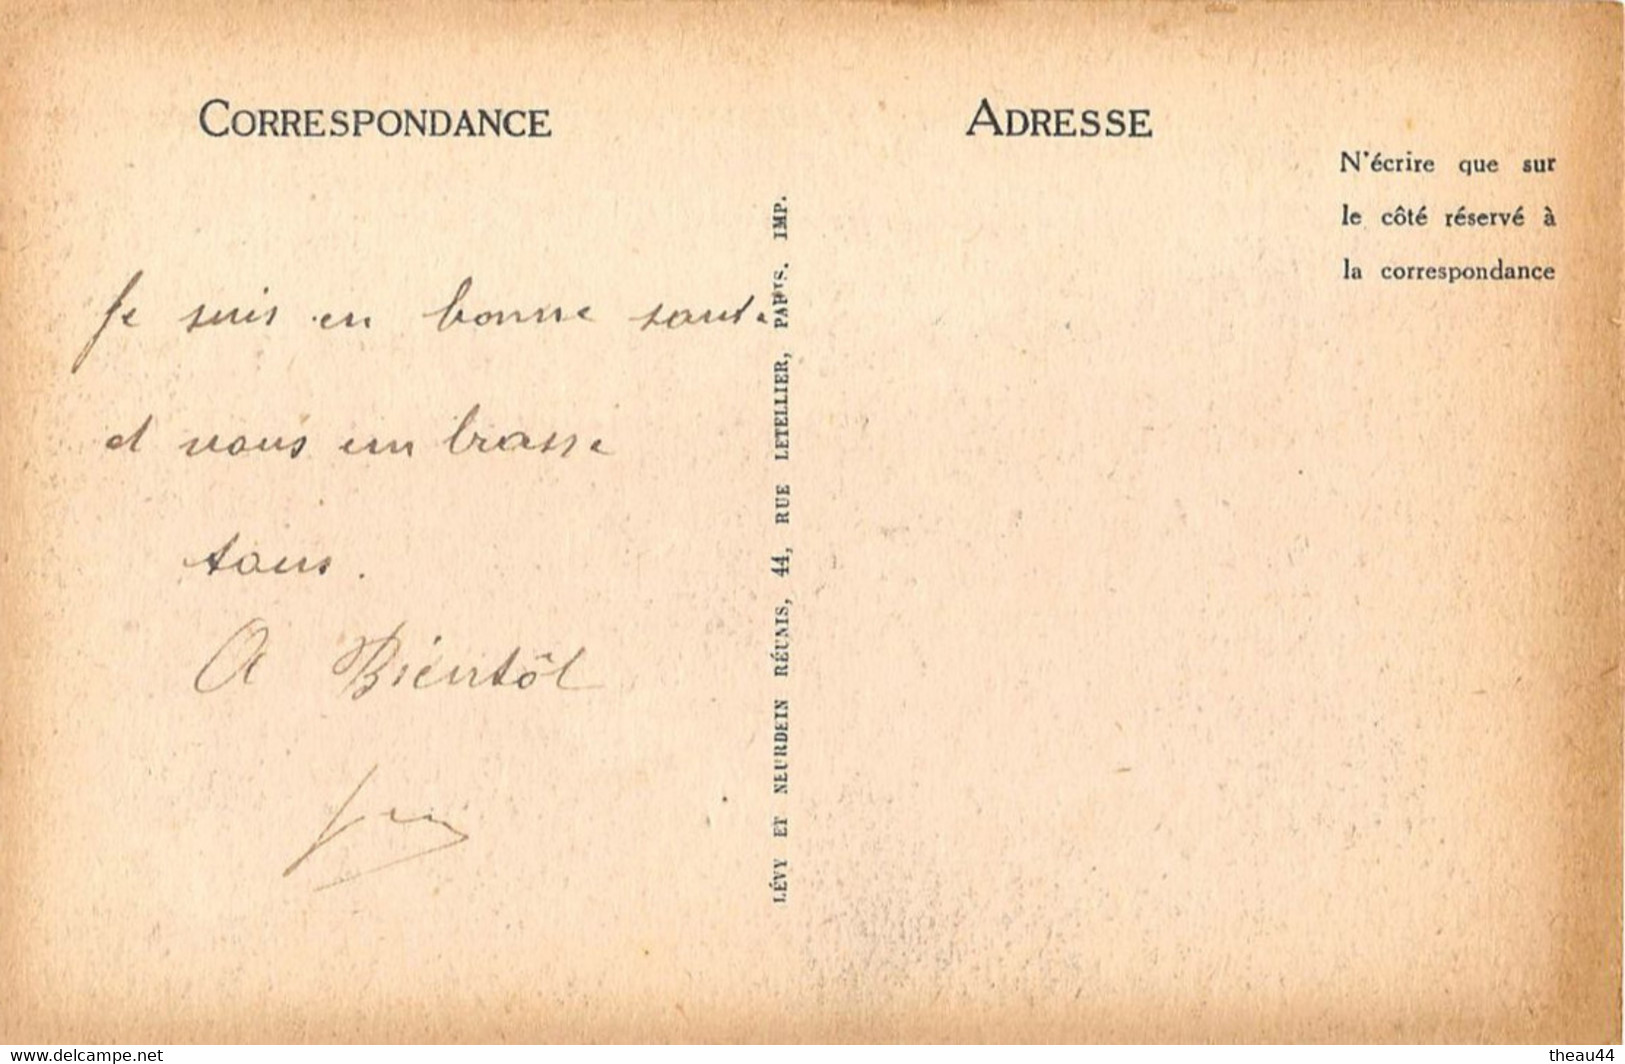 CORRESPONDANCE
Je suis en bonne santé
et vous embrasse
tous.
A Bientôt
LÉVY ET NEURDEIN RÉUNIS, 44, RUE LETELLIER, PARIS. IMP.
ADRESSE
N'écrire que sur
le côté réservé à
la correspondance
www.delcampe.net
theau44